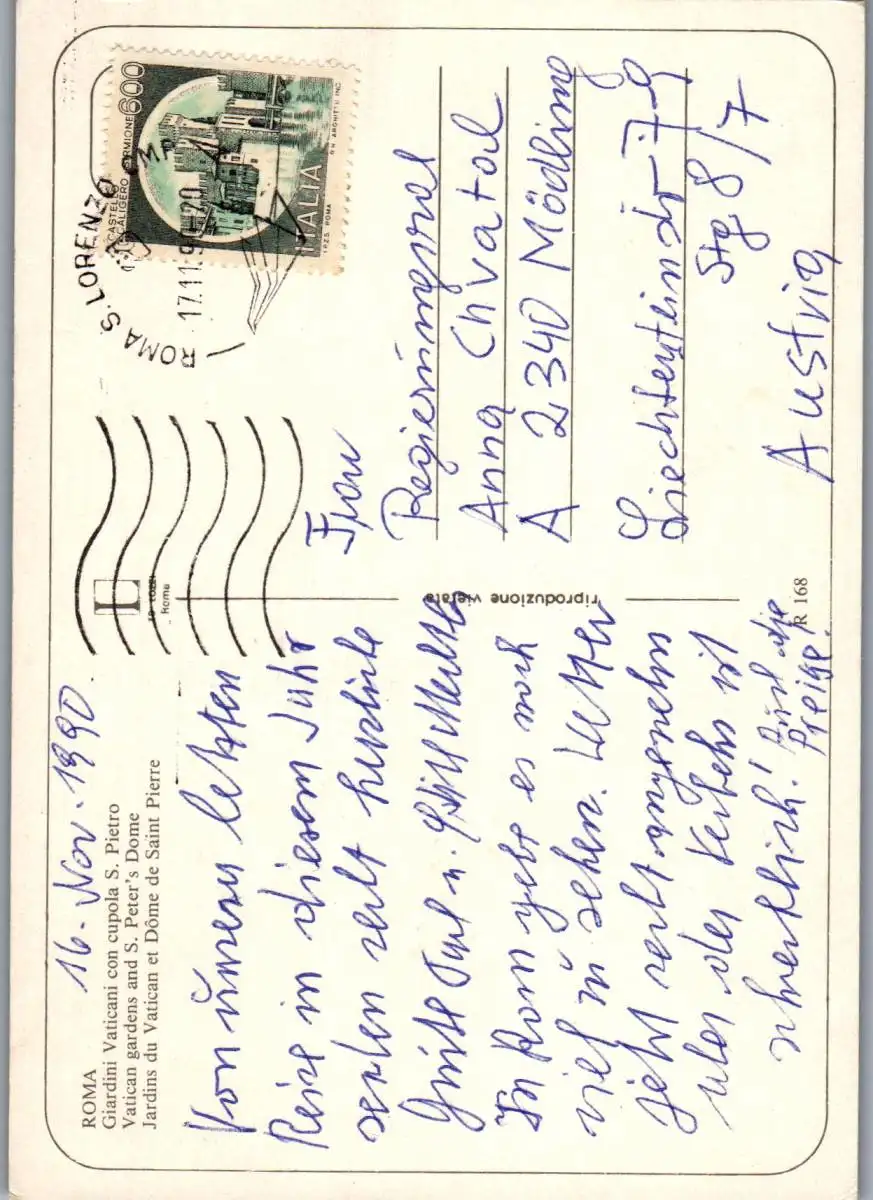 ROMA
Giardini Vaticani con cupola S. Pietro
Vatican gardens and S. Peter's Dome
Jardins du Vatican et Dôme de Saint Pierre
16. Nov. 1990.
Von unserer letzten
Reise in diesem Jahr
senden recht herzliche
Grüße
In Rom gibt es noch
viel zu sehen. Wetter
jetzt recht angenehm
aber der Verkehr ist
schrecklich! Auch die
Preise!
L
Roma
riproduzione vietata
R 168
CASTELLO
SCALIGERO SIRMIONE
600
ITALIA
I.P.Z.S. ROMA
ROMA S. LORENZO
17.11.9 -20
Frau
Regierungsrat
Anna Chvatal
A 2340 Mödling
Liechtensteinstr 79
Stg 8/7
Austria